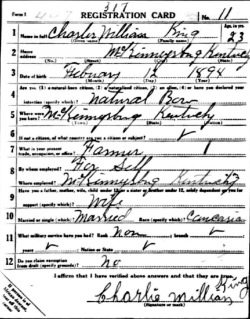 Form 1
317
REGISTRATION CARD No. 11
1 Name in full Charlie William King Age, in yrs. 23
(Given name) (Family name)
2 Home address McKinneysburg Kentucky
3 Date of birth Febuary 12 1894
(Month) (Day) (Year)
4 Are you (1) a natural-born citizen, (2) a naturalized citizen, (3) an alien, (4) or have you declared your
intention (specify which)? Natural Born
5 Where were you born? McKinneysburg Kentucky
6 If not a citizen, of what country are you a citizen or subject?
7 What is your present trade, occupation, or office? Farmer
8 By whom employed? For Self
Where employed? McKinneysburg Kentucky
9 Have you a father, mother, wife, child under 12, or a sister or brother under 12, solely dependent on you for
support (specify which)? Wife
10 Married or single (which)? Married Race (specify which)? Caucasian
11 What military service have you had? Rank Non branch
years Nation or State
12 Do you claim exemption from draft (specify grounds)? No
I affirm that I have verified above answers and that they are true.
Charlie William King
(Signature or mark)